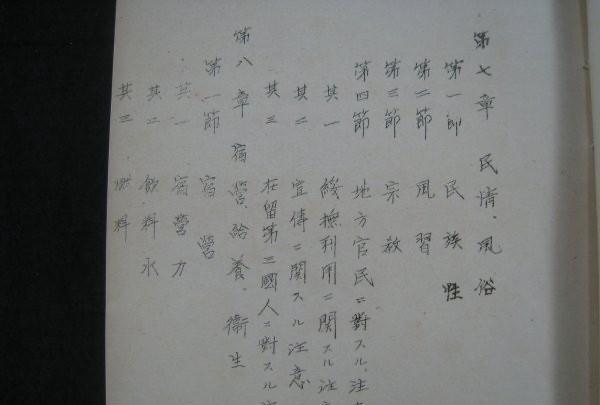 第七章 民情、風俗
第一節 民族性
第二節 風習
第三節 宗教
第四節 地方官民ニ對スル注
其一 綏撫利用ニ関スル注
其二 宣傳ニ関スル注意
其三 在留第三國人ニ對スル
第八章 宿營、給養、衛生
第一節 宿營
其一 宿營力
其二 飲料水
其三 燃料